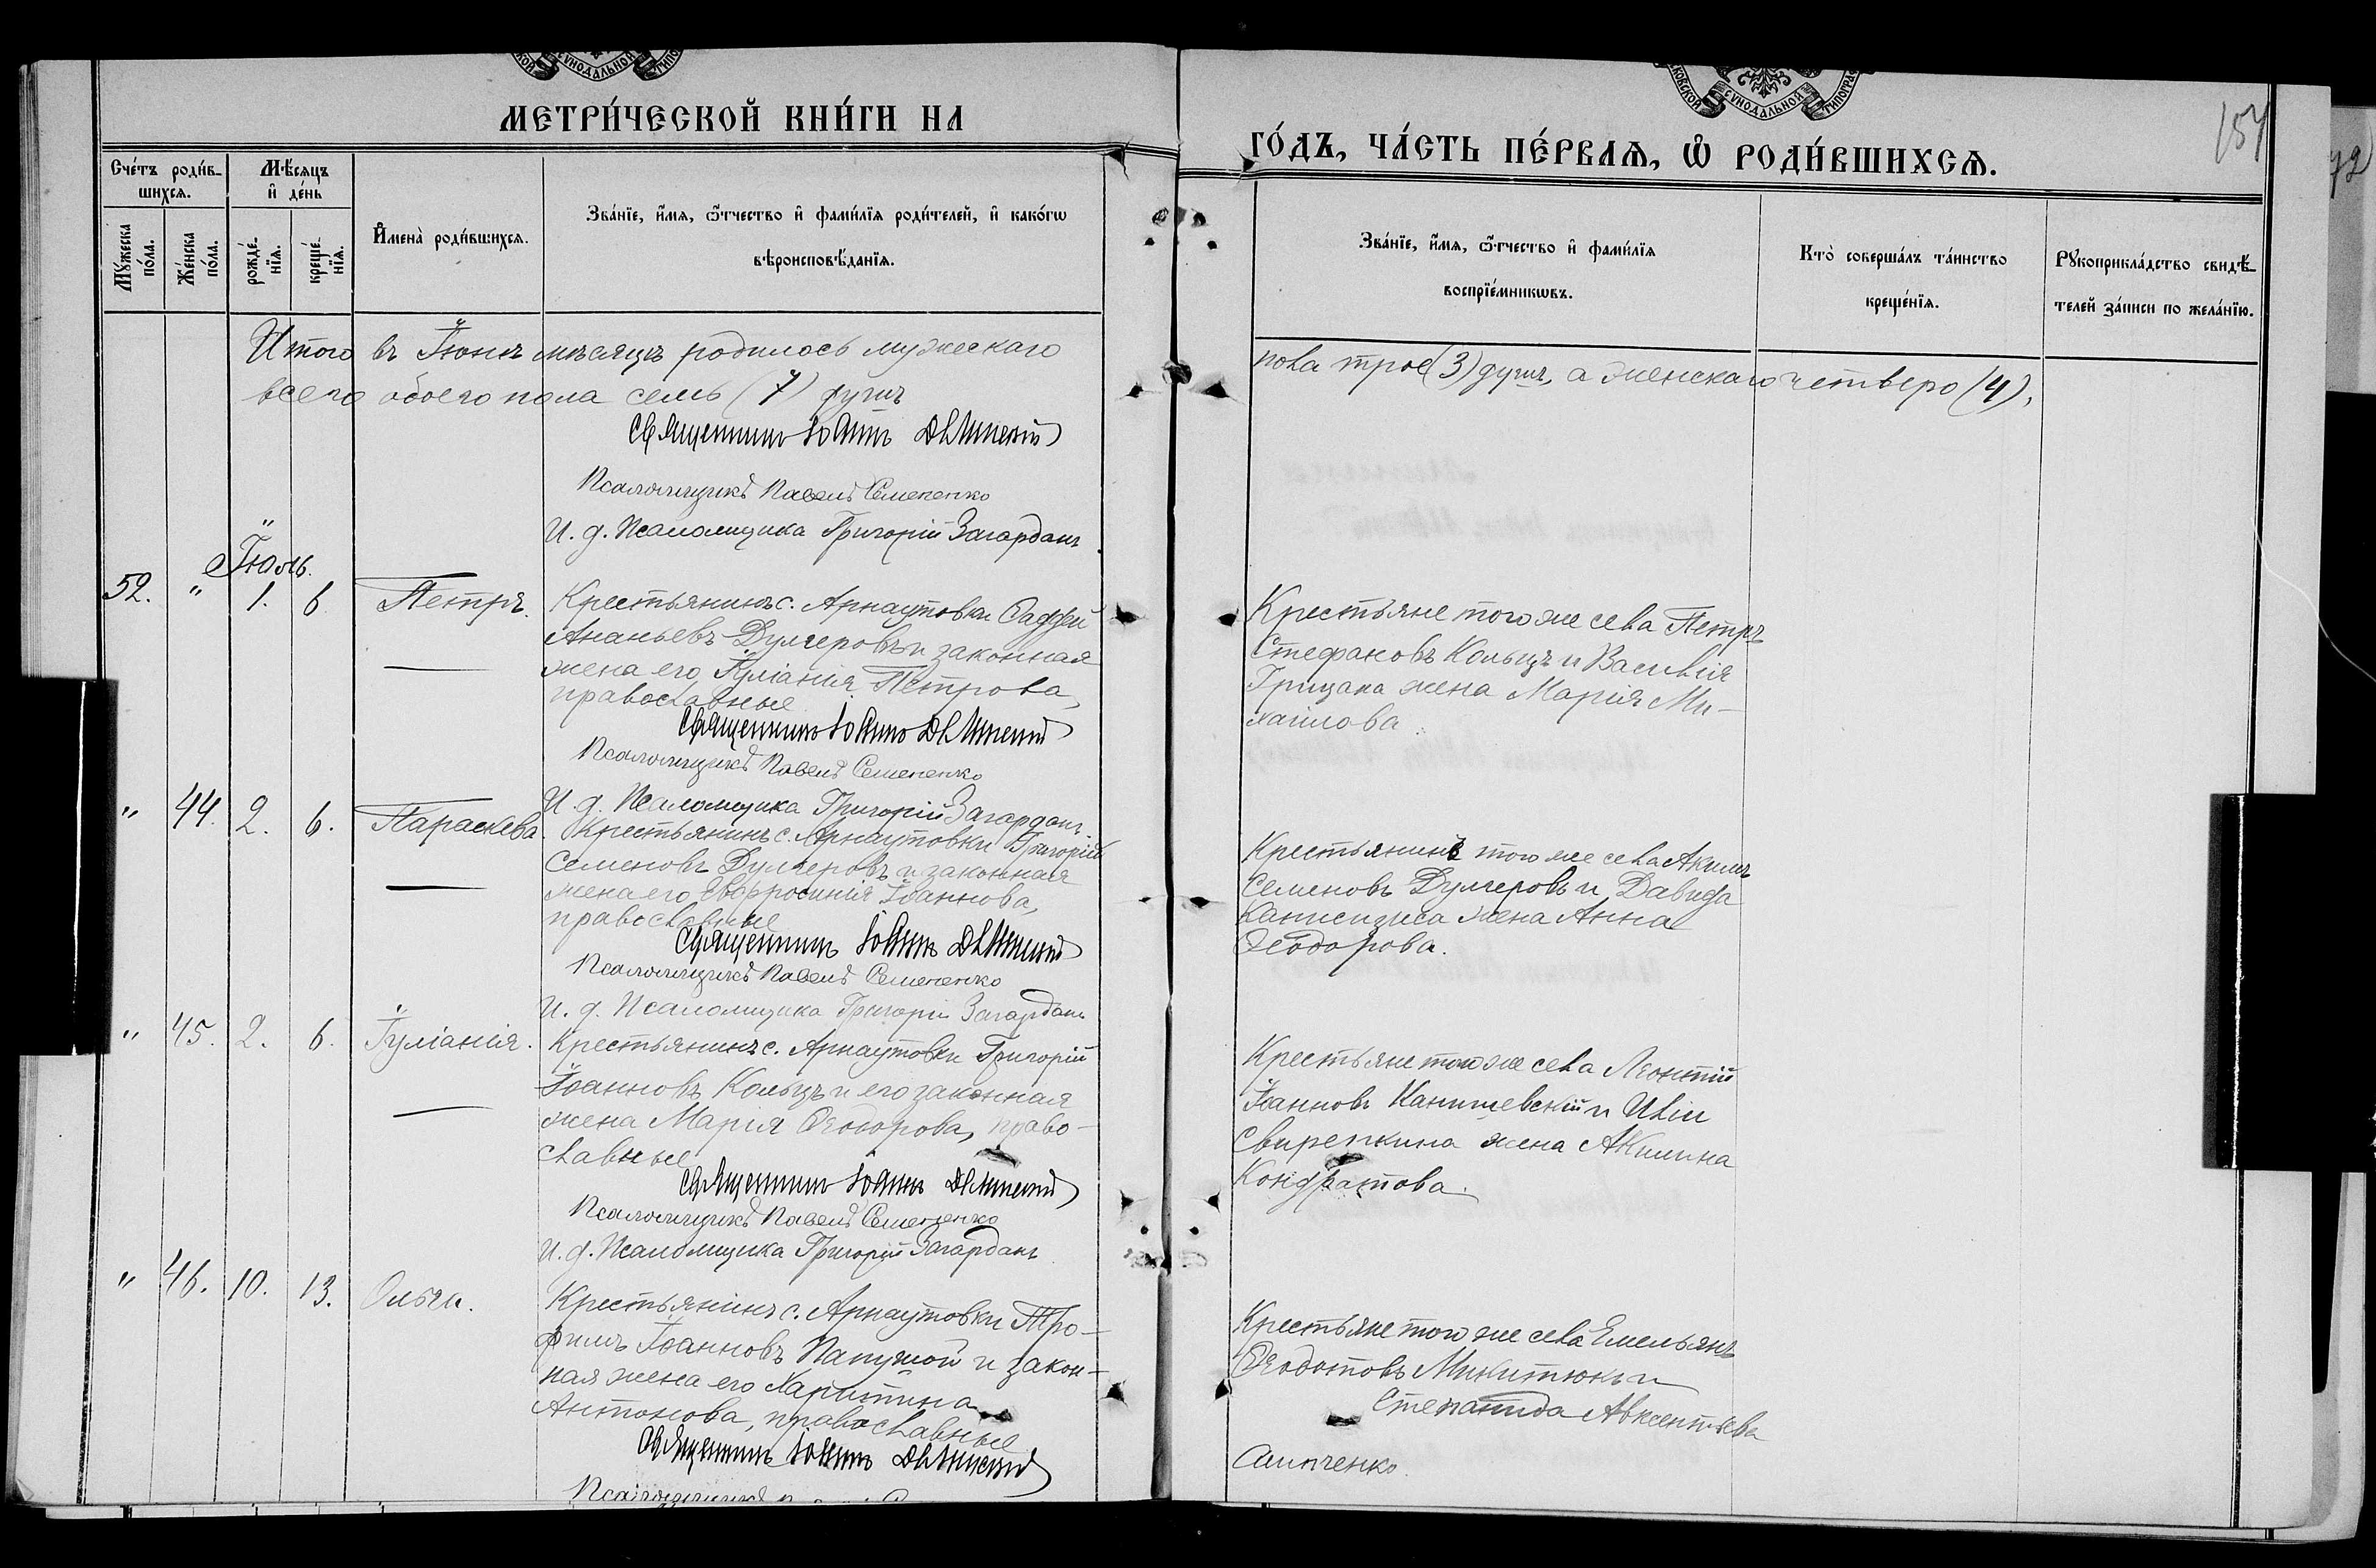 МЕТРИ́ЧЕСКОЙ КНИ́ГИ НА
Сче́тъ роди́в-
шихсѧ.
Мѣ́сѧцъ
и҆ де́нь
Мꙋ́жеска
по́ла.
Же́нска
по́ла.
рожде́-
нїѧ.
креще́-
нїѧ.
И҆мена̀ роди́вшихсѧ.
Зва́нїе, и҆́мѧ, ѻ҆́тчество и҆ фами́лїѧ роди́телей, и҆ како́гѡ
вѣроисповѣ́данїѧ.
Итого въ Іюнѣ мѣсяцѣ родилось мужескаго
всего обоего пола семь (7) душъ
Священникъ Іоаннъ
Псаломщикъ Павелъ Семененко
И. д. Псаломщика Григорій Загарданъ.
Іюль.
52. " 1. 6. Петръ. Крестьянинъ с. Арнаутовки Фаддей
Ананьевъ Дулгеровъ и законная
жена его Іуліанія Петрова,
православные
Священникъ Іоаннъ
Псаломщикъ Павелъ Семененко
И. д. Псаломщика Григорій Загарданъ.
" 44. 2. 6. Параскева. Крестьянинъ с. Арнаутовки Григорій
Семеновъ Дулгеровъ и законная
жена его Евфросинія Іоаннова,
православные
Священникъ Іоаннъ
Псаломщикъ Павелъ Семененко
И. д. Псаломщика Григорій Загарданъ
" 45. 2. 6. Іуліанія. Крестьянинъ с. Арнаутовки Григорій
Іоанновъ Кольцъ и его законная
жена Марія Ѳеодорова, право-
славные
Священникъ Іоаннъ
Псаломщикъ Павелъ Семененко
И. д. Псаломщика Григорій Загарданъ
" 46. 10. 13. Ольга. Крестьянинъ с. Арнаутовки Тро-
фимъ Іоанновъ Папужой и закон-
ная жена его Харитина
Антонова, православные
Священникъ Іоаннъ
Псаломщикъ
ГО́ДЪ, ЧА́СТЬ ПЕ́РВАѦ, Ѡ҆ РОДИ́ВШИХСѦ.
Зва́нїе, и҆́мѧ, ѻ҆́тчество и҆ фами́лїѧ
воспрїе́мникѡвъ.
Кто̀ соверша́лъ та́инство
креще́нїѧ.
Рꙋкоприкла́дство свидѣ́-
телей за́писи по жела́нїю.
пола трое (3) душъ, а женскаго четверо (4),
Крестьяне того же села Петръ
Стефановъ Кольцъ и Василія
Грицака жена Марія Ми-
хаилова.
Крестьянинъ того же села Акимъ
Семеновъ Дулгеровъ и Давида
жена Анна
Ѳеодорова.
Крестьяне того же села Леонтій
Іоанновъ Канишевскій и Иліи
Свирепкина жена Акилина
Кондратова.
Крестьяне того же села Емельянъ
Ѳеодотовъ Микитюкъ и
Степанида Авксентьева